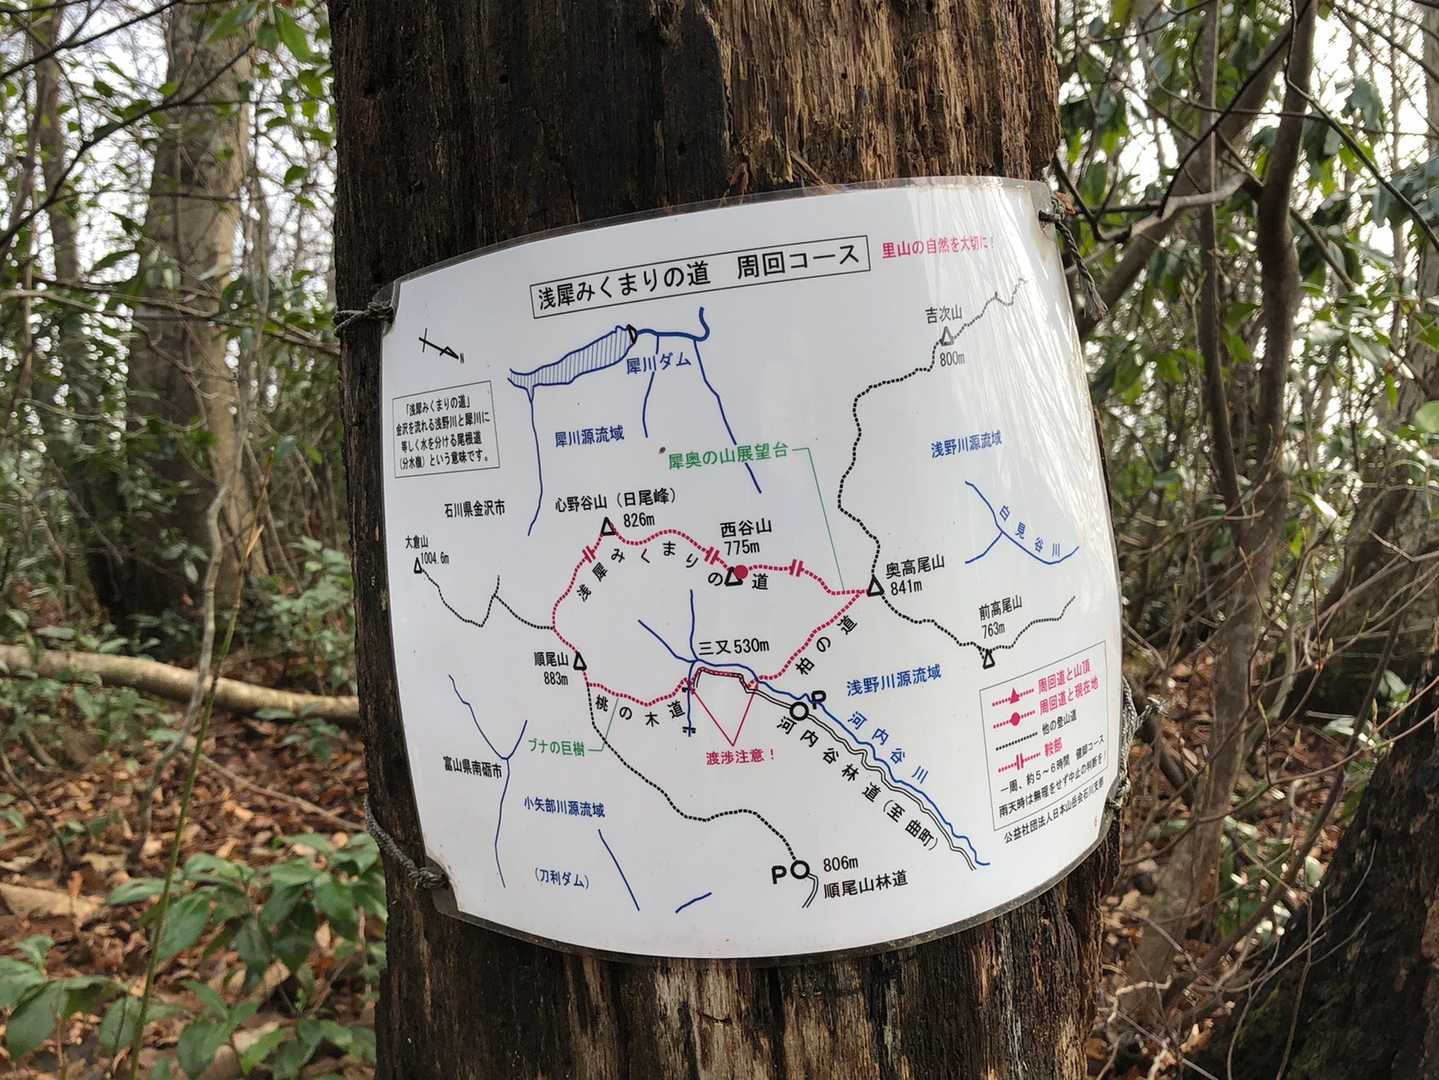 浅犀みくまりの道　周回コース
里山の自然を大切に！
吉次山
800m
N
犀川ダム
「浅犀みくまりの道」
金沢を流れる浅野川と犀川に
等しく水を分ける尾根道
(分水嶺) という意味です。
犀川源流域
犀奥の山展望台
浅野川源流域
白見谷川
石川県金沢市
心野谷山 (日尾峰)
826m
西谷山
775m
大倉山
1004.6m
浅犀みくまりの道
奥高尾山
841m
前高尾山
763m
三又530m
柏の道
順尾山
883m
浅野川源流域
桃の木道
P
河内谷川
河内谷林道 (至曲町)
ブナの巨樹
渡渉注意！
富山県南砺市
小矢部川源流域
(刀利ダム)
P
806m
順尾山林道
周回道と山頂
周回道と現在地
他の登山道
鞍部
一周、約5～6時間 健脚コース
雨天時は無理をせず中止の判断を！
公益社団法人日本山岳会石川支部